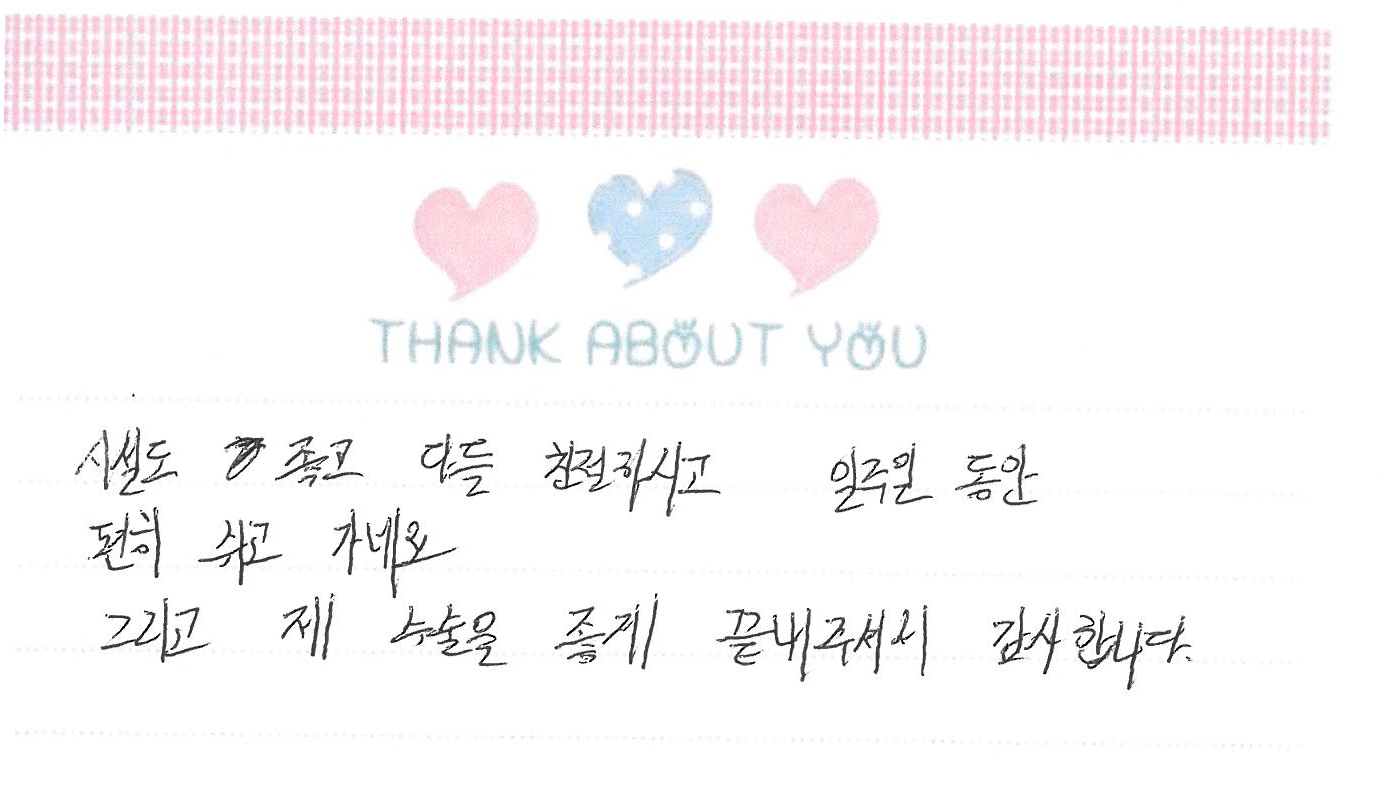 THANK ABOUT YOU
시설도 좋고 다들 친절하시고 일주일 동안
편히 쉬고 가네요
그리고 제 수술을 좋게 끝내주셔서 감사합니다.